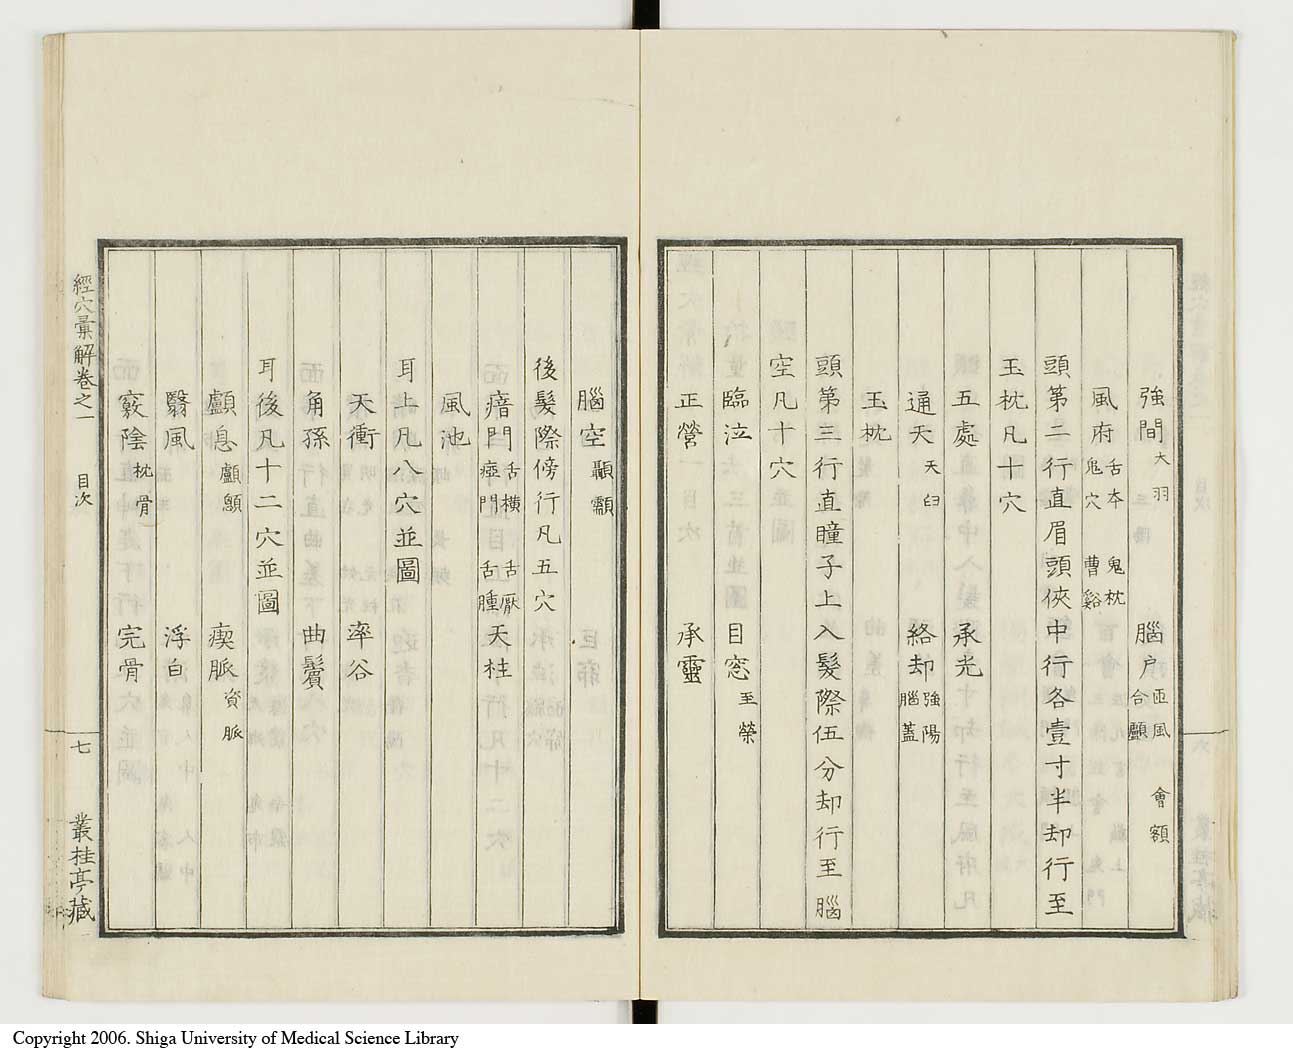 強間 大羽 腦戶 匝風 會額 合顱
風府 舌本 鬼枕 鬼穴 曹谿
頭第二行直眉頭俠中行各壹寸半却行至
玉枕凡十穴
五處 承光
通天 天臼 絡却 強陽 腦蓋
玉枕
頭第三行直瞳子上入髮際伍分却行至腦
空凡十穴
臨泣 目窓 至榮
正營 承靈
腦空 顳顬
後髮際傍行凡五穴
瘖門 舌橫 舌厭 瘂門 舌腫 天柱
風池
耳上凡八穴並圖
天衝 率谷
角孫 曲鬢
耳後凡十二穴並圖
顱息 瘈脈 資脈
翳風 浮白
竅陰 枕骨 完骨
經穴彙解卷之一 目次 七 叢桂亭藏
Copyright 2006. Shiga University of Medical Science Library